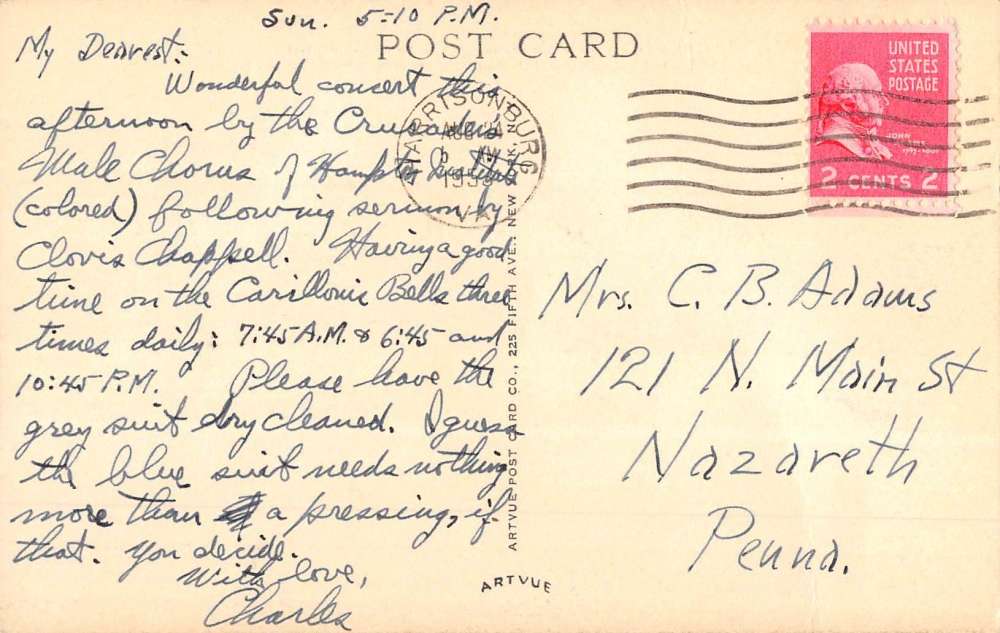 Sun. 5-10 P.M.
POST CARD
My Dearest:
Wonderful concert this
afternoon by the Crusaders
Male Chorus of Hampton Institute
(colored) following sermon by
Clovis Chappell. Having a good
time on the Carillonic Bells three
times daily: 7:45 A.M. & 6:45 and
10:45 P.M. Please have the
grey suit dry cleaned. I guess
the blue suit needs nothing
more than a pressing, if
that. You decide.
With love,
Charles
HARRISONBURG
AUG
VA.
UNITED
STATES
POSTAGE
JOHN
2 CENTS 2
Mrs. C. B. Adams
121 N. Main St
Nazareth
Penna.
ARTVUE POST CARD CO., 225 FIFTH AVE., NEW YORK, N.
ARTVUE